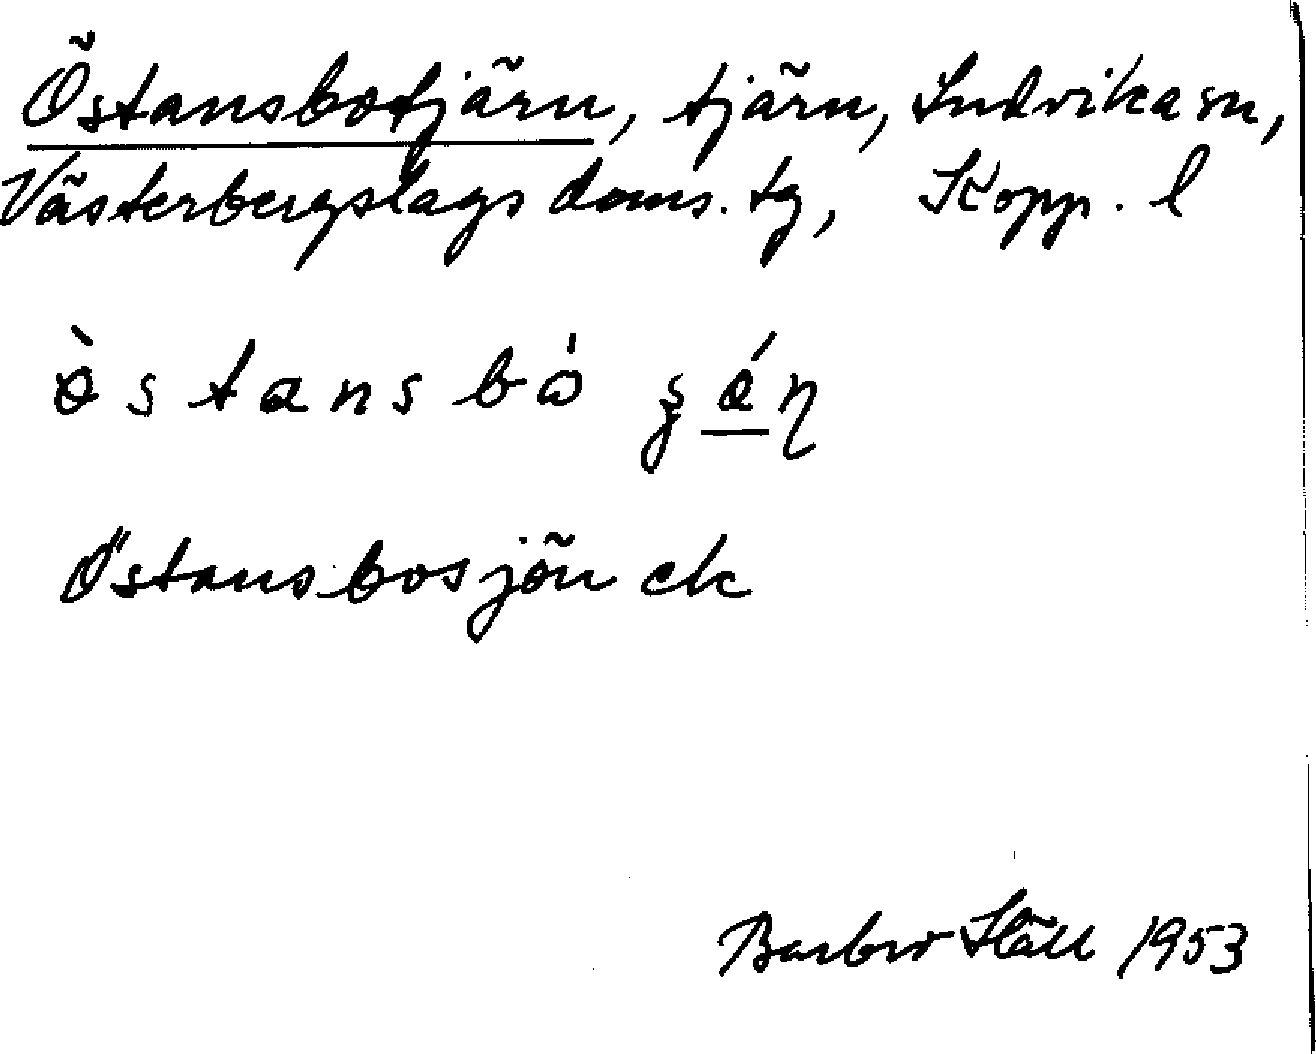 Östansbotjärn, tjärn, Ludvika sn,
Västerbergslags doms. tg, Kopp. l
Östansbosjön ek
Barbro Ståll 1953